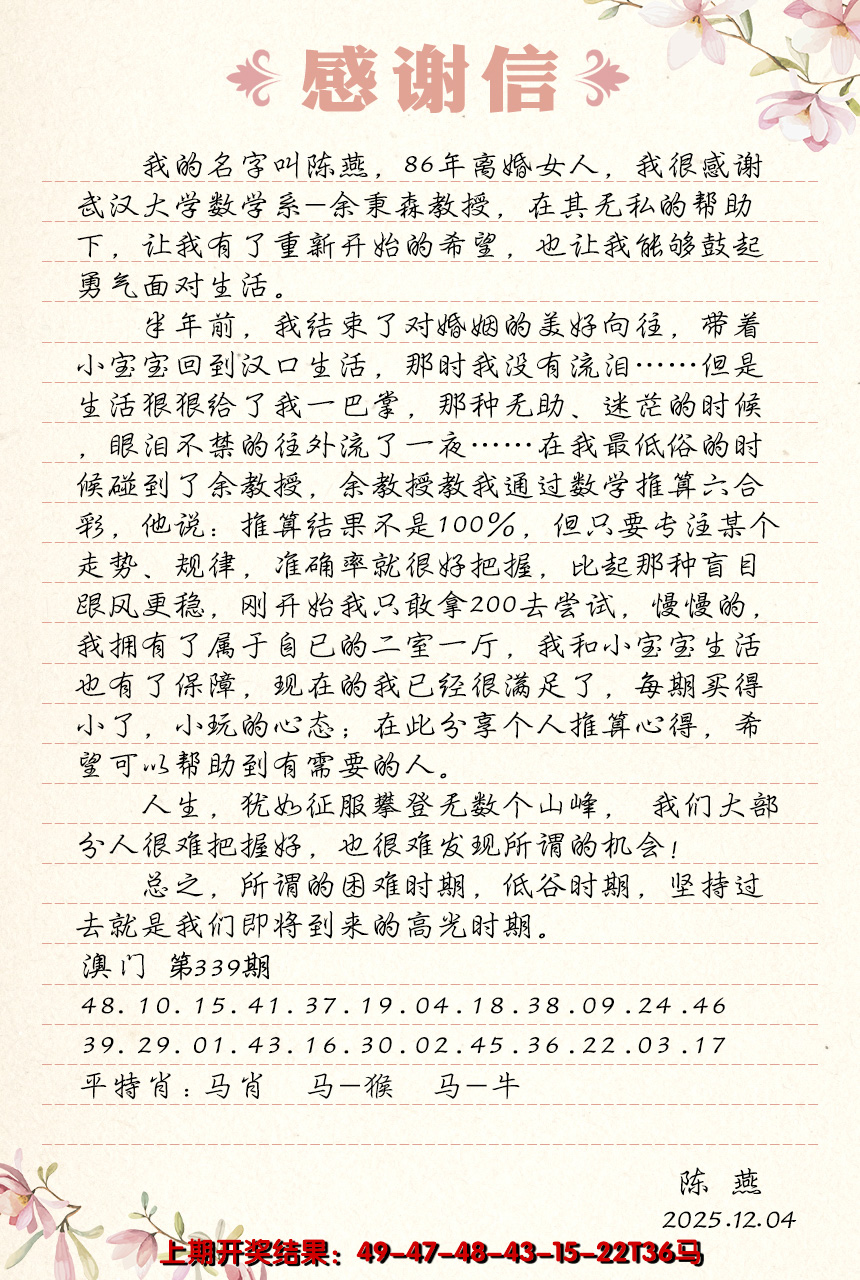 感谢信
我的名字叫陈燕，86年离婚女人，我很感谢
武汉大学数学系-余秉森教授，在其无私的帮助
下，让我有了重新开始的希望，也让我能够鼓起
勇气面对生活。
半年前，我结束了对婚姻的美好向往，带着
小宝宝回到汉口生活，那时我没有流泪……但是
生活狠狠给了我一巴掌，那种无助、迷茫的时候
，眼泪不禁的往外流了一夜……在我最低俗的时
候碰到了余教授，余教授教我通过数学推算六合
彩，他说：推算结果不是100%，但只要专注某个
走势、规律，准确率就很好把握，比起那种盲目
跟风更稳，刚开始我只敢拿200去尝试，慢慢的，
我拥有了属于自已的二室一厅，我和小宝宝生活
也有了保障，现在的我已经很满足了，每期买得
小了，小玩的心态；在此分享个人推算心得，希
望可以帮助到有需要的人。
人生，犹如征服攀登无数个山峰， 我们大部
分人很难把握好，也很难发现所谓的机会！
总之，所谓的困难时期，低谷时期，坚持过
去就是我们即将到来的高光时期。
澳门 第339期
48.10.15.41.37.19.04.18.38.09.24.46
39.29.01.43.16.30.02.45.36.22.03.17
平特肖：马肖 马-猴 马-牛
陈 燕
2025.12.04
上期开奖结果：49-47-48-43-15-22T36马